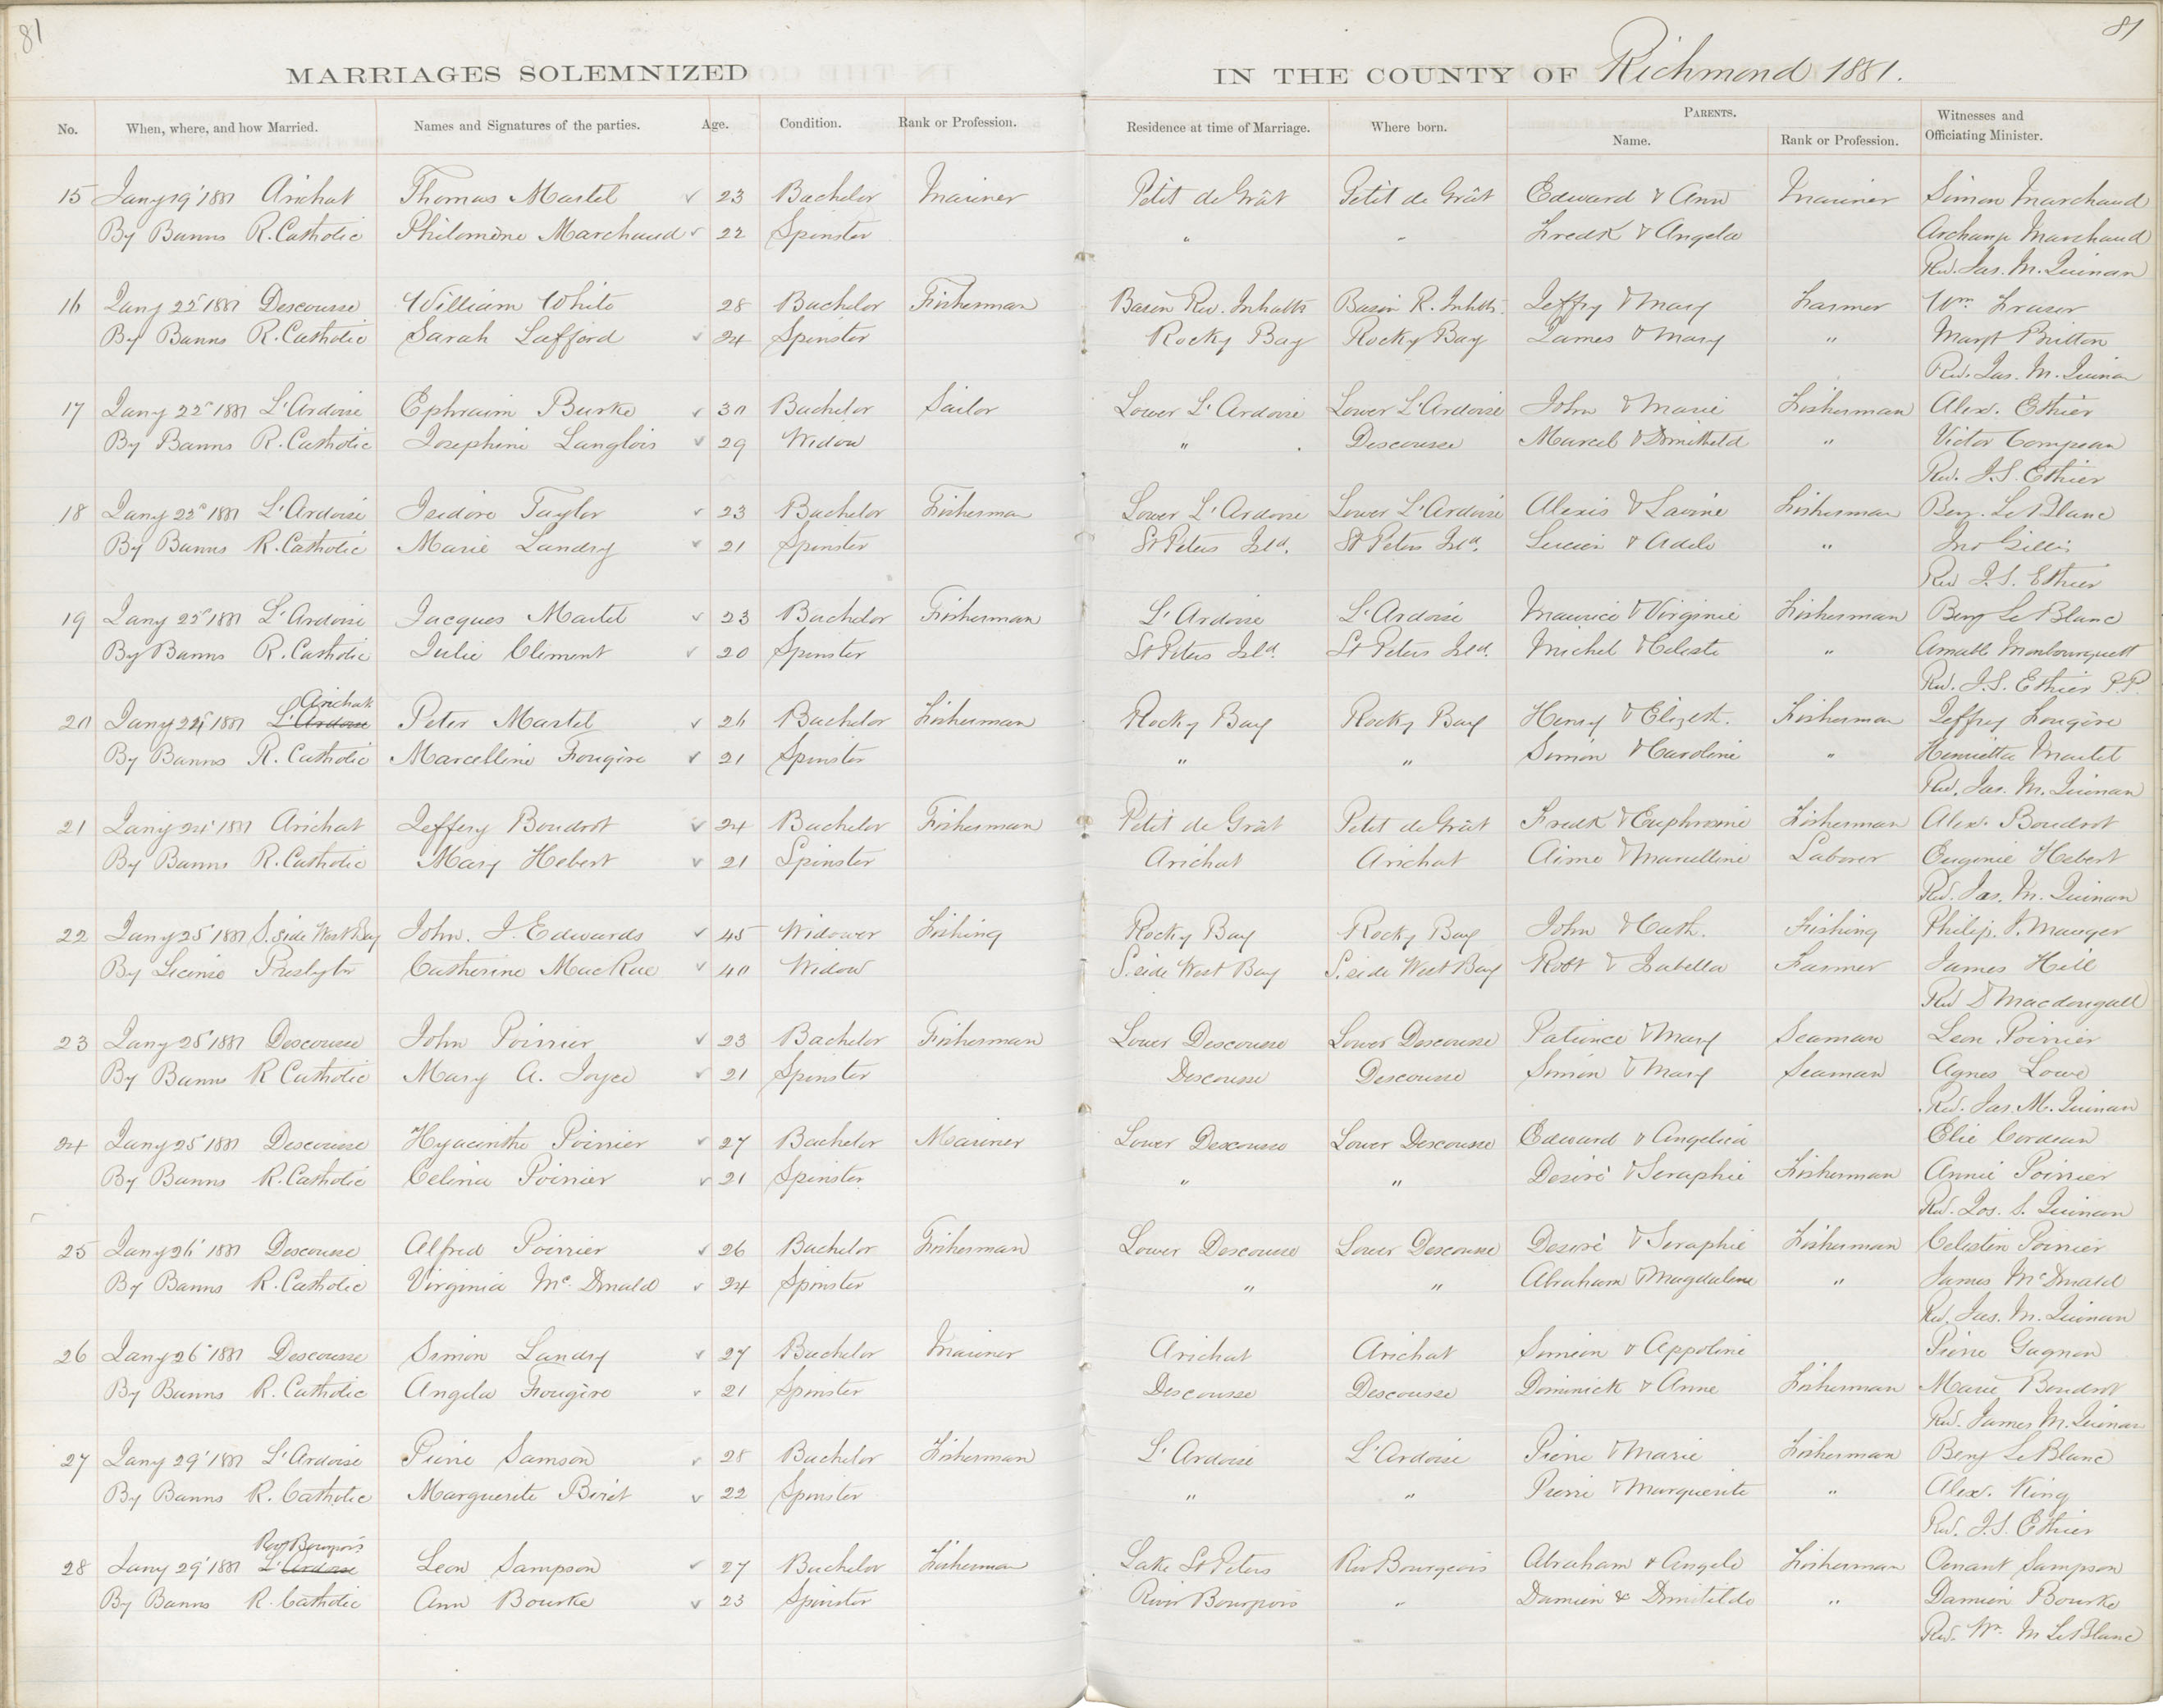 81
81
MARRIAGES SOLEMNIZED IN THE COUNTY OF Richmond 1881.
No. When, where, and how Married. Names and Signatures of the parties. Age. Condition. Rank or Profession. Residence at time of Marriage. Where born. PARENTS. Name. Rank or Profession. Witnesses and Officiating Minister.
15 Jany 19' 1881 Arichat Thomas Martel 23 Bachelor Mariner Petit de Grât Petit de Grât Edward & Ann Mariner Simon Marchand
By Banns R. Catholic Philomène Marchand 22 Spinster " " Fredk & Angela Archange Marchand
Rev. Jas. M. Quinan
16 Jany 22' 1881 Descousse William White 28 Bachelor Fisherman Basin Riv. Inhabts Basin R. Inhbts. Jeffry & Mary Farmer Wm Fraser
By Banns R. Catholic Sarah Lafford 24 Spinster Rocky Bay Rocky Bay James & Mary " Margt Britton
Rev. Jas. M. Quinan
17 Jany 22" 1881 L'Ardoise Ephraim Burke 30 Bachelor Sailor Lower L'Ardoise Lower L'Ardoise John & Marie Fisherman Alex. Ethier
By Banns R. Catholic Josephine Langlois 29 Widow " Descousse Marcel & Domitheld " Victor Compean
Rev. J.S. Ethier
18 Jany 22" 1881 L'Ardoise Isidore Taylor 23 Bachelor Fisherman Lower L'Ardoise Lower L'Ardoise Alexis & Lavine Fisherman Benj. Le Blanc
By Banns R. Catholic Marie Landry 21 Spinster St Peters Isld. St Peters Isld. Lucien & Adele " Jno Gillis
Rev J.S. Ethier
19 Jany 22" 1881 L'Ardoise Jacques Martel 23 Bachelor Fisherman L'Ardoise L'Ardoise Maurice & Virginie Fisherman Benj Le Blanc
By Banns R. Catholic Julie Climent 20 Spinster St Peters Isld. St Peters Isld. Michel & Celeste " Amable Monbourquett
Rev. J.S. Ethier P.P.
Arichat
20 Jany 24' 1881 L'Ardoise Peter Martel 26 Bachelor Fisherman Rocky Bay Rocky Bay Henry & Elizest. Fisherman Jeffrey Fougère
By Banns R. Catholic Marcelline Fougère 21 Spinster " " Simon & Caroline " Henrietta Martel
Rev. Jas. M. Quinan
21 Jany 24' 1881 Arichat Jeffery Boudrot 24 Bachelor Fisherman Petit de Grât Petit de Grât Fredk & Euphrosine Fisherman Alex. Boudrot
By Banns R. Catholic Mary Hebert 21 Spinster Arichat Arichat Aime & Marcelline Laborer Eugenie Hebert
Rev. Jas. M. Quinan
22 Jany 25' 1881 S. side West Bay John. J. Edwards 45 Widower Fishing Rocky Bay Rocky Bay John & Cath. Fishing Philip. P. Mauger
By License Presbytn Catherine MacRae 40 Widow S. side West Bay S. side West Bay Robt & Isabella Farmer James Hill
Rev D Macdougall
23 Jany 25' 1881 Descousse John Poirrier 23 Bachelor Fisherman Lower Descousse Lower Descousse Patience & Mary Seaman Leon Poirrier
By Banns R Catholic Mary A. Joyce 21 Spinster Descousse Descousse Simon & Mary Seaman Agnes Lowe
Rev. Jas. M. Quinan
24 Jany 25' 1881 Descousse Hyacinthe Poirrier 27 Bachelor Mariner Lower Descousse Lower Descousse Edward & Angelica Elie Cordeau
By Banns R. Catholic Celina Poirrier 21 Spinster " " Desiré & Seraphie Fisherman Annie Poirrier
Rev. Jas. S. Quinan
25 Jany 26' 1881 Descousse Alfred Poirrier 26 Bachelor Fisherman Lower Descousse Lower Descousse Desiré & Seraphie Fisherman Celestin Poirrier
By Banns R. Catholic Virginia Mc. Donald 24 Spinster " " Abraham & Magdalene " James McDonald
Rev. Jas. M. Quinan
26 Jany 26' 1881 Descousse Simon Landry 27 Bachelor Mariner Arichat Arichat Simeon & Appoline Pierre Gagnon
By Banns R. Catholic Angela Fougère 21 Spinster Descousse Descousse Dominick & Anne Fisherman Marie Boudrot
Rev. James M. Quinan
27 Jany 29' 1881 L'Ardoise Pierre Samson 28 Bachelor Fisherman L'Ardoise L'Ardoise Pierre & Marie Fisherman Benj Le Blanc
By Banns R. Catholic Marguerite Birèt 22 Spinster " " Pierre & Marguerite " Alex. King
Rev. J.S. Ethier
Rivr Bourgois
28 Jany 29' 1881 L'Ardoise Leon Sampson 27 Bachelor Fisherman Lake St Peters Riv Bourgeois Abraham & Angele Fisherman Sampson
By Banns R. Catholic Ann Bourke 23 Spinster River Bourgois " Damien & Domitilde " Damien Bourke
Rev. Wm. M LeBlanc